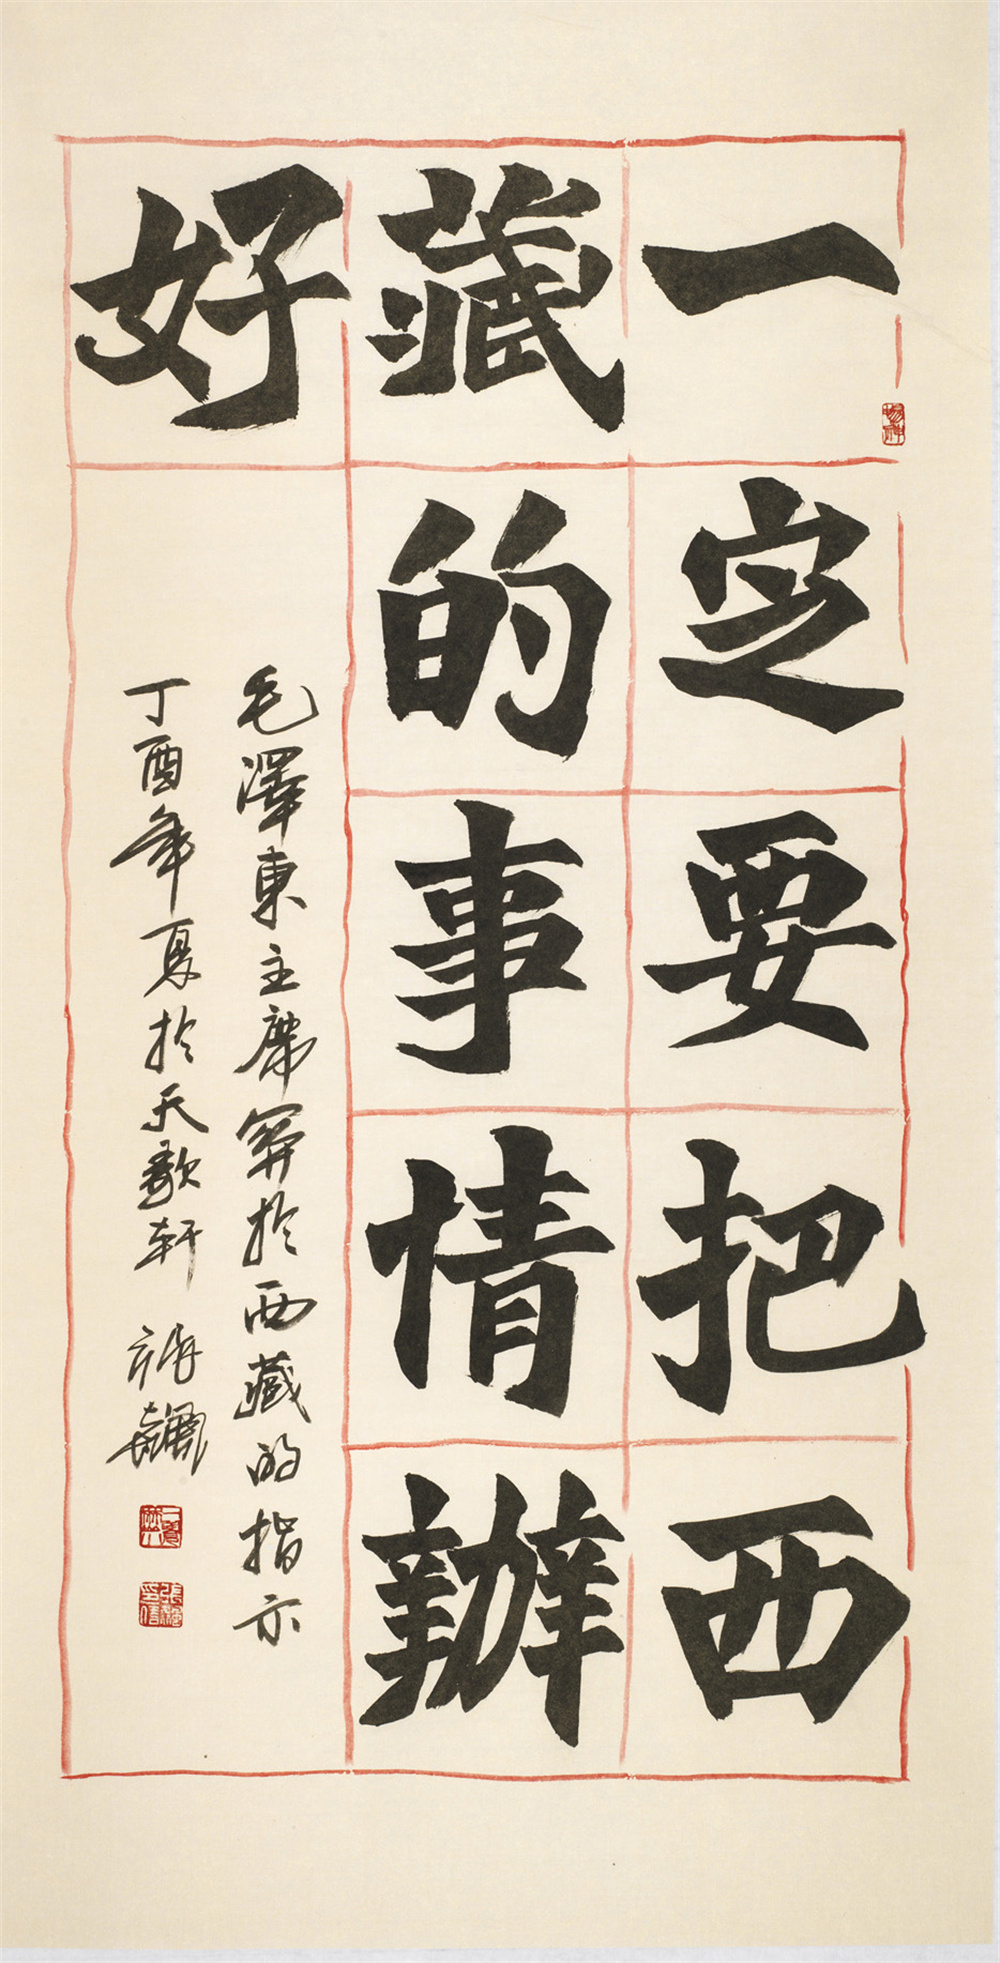 一定要把西
藏的事情辦
好
毛澤東主席關於西藏的指示
丁酉年夏於天歌軒